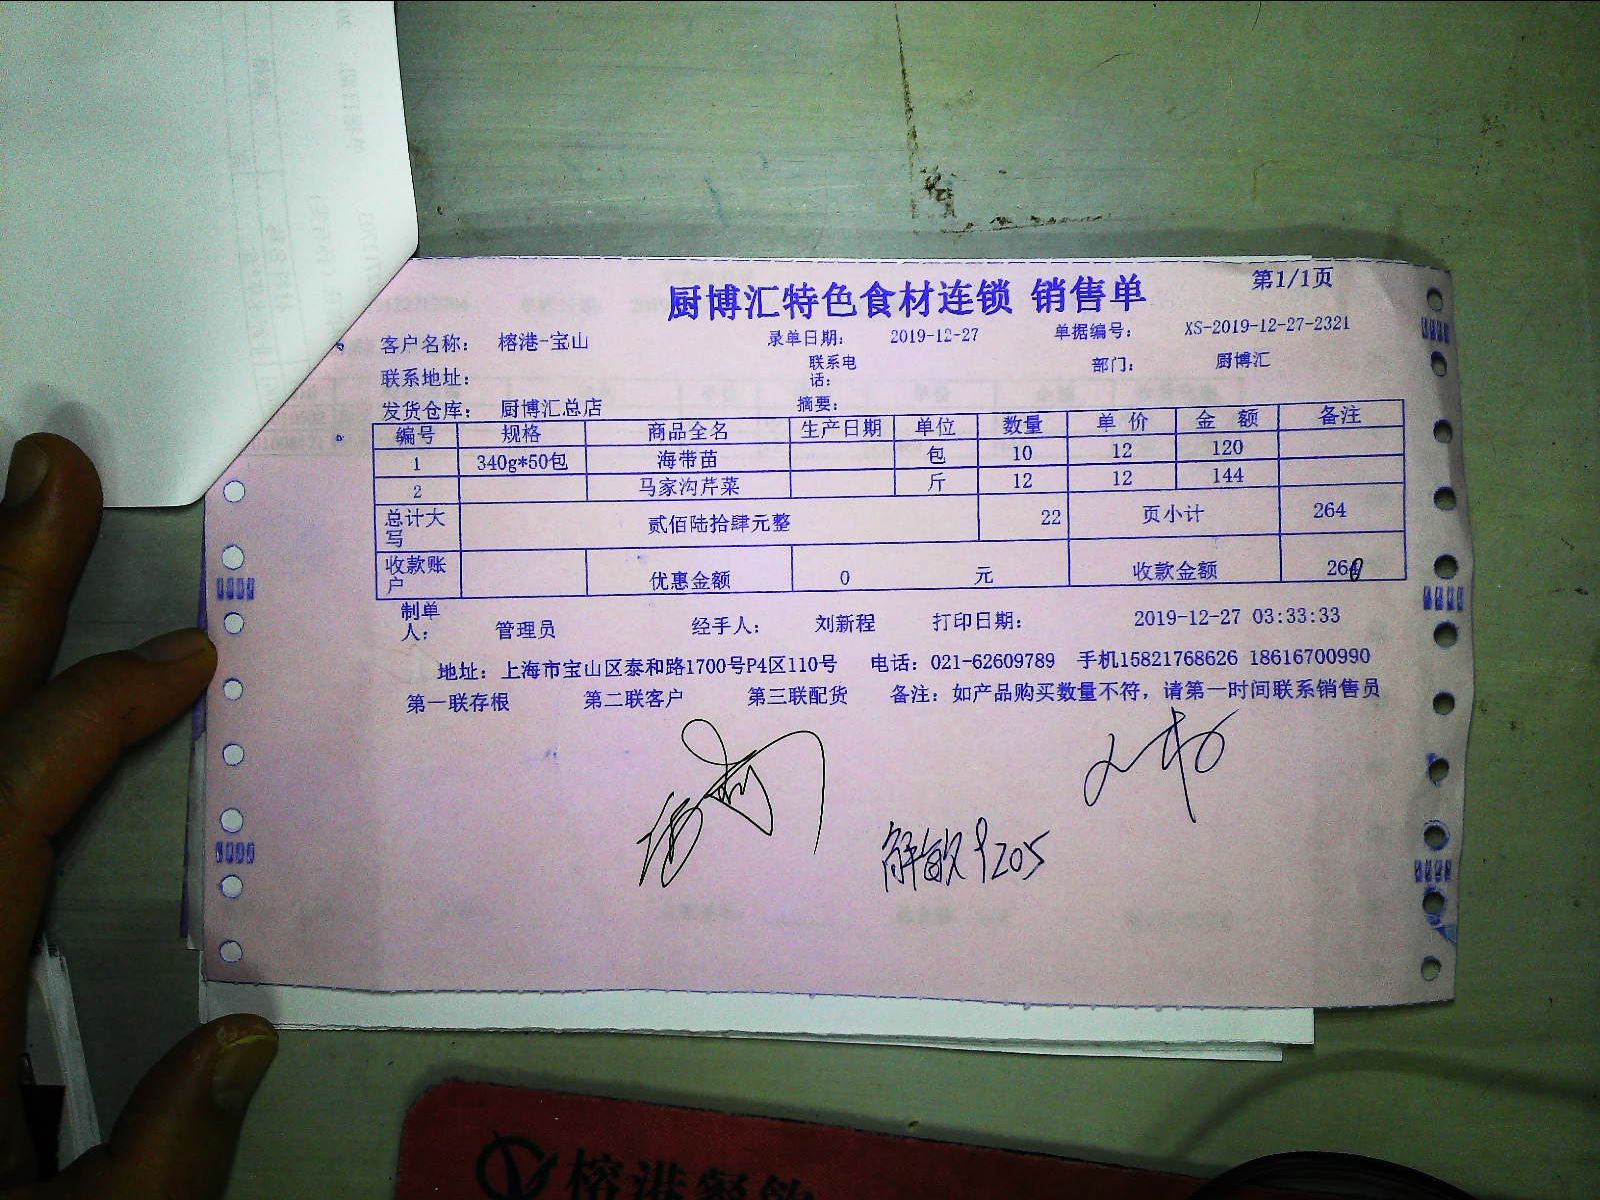 厨博汇特色食材连锁 销售单 第1/1页
客户名称: 榕港-宝山 录单日期: 2019-12-27 单据编号: XS-2019-12-27-2321
联系地址: 联系电话: 部门: 厨博汇
发货仓库: 厨博汇总店 摘要:
编号 规格 商品全名 生产日期 单位 数量 单 价 金 额 备注
1 340g*50包 海带苗 包 10 12 120
2 马家沟芹菜 斤 12 12 144
总计大写 贰佰陆拾肆元整 22 页小计 264
收款账户 优惠金额 0 元 收款金额 260
制单人: 管理员 经手人: 刘新程 打印日期: 2019-12-27 03:33:33
地址: 上海市宝山区泰和路1700号P4区110号 电话: 021-62609789 手机15821768626 18616700990
第一联存根 第二联客户 第三联配货 备注: 如产品购买数量不符, 请第一时间联系销售员
解敏9205
榕港餐饮